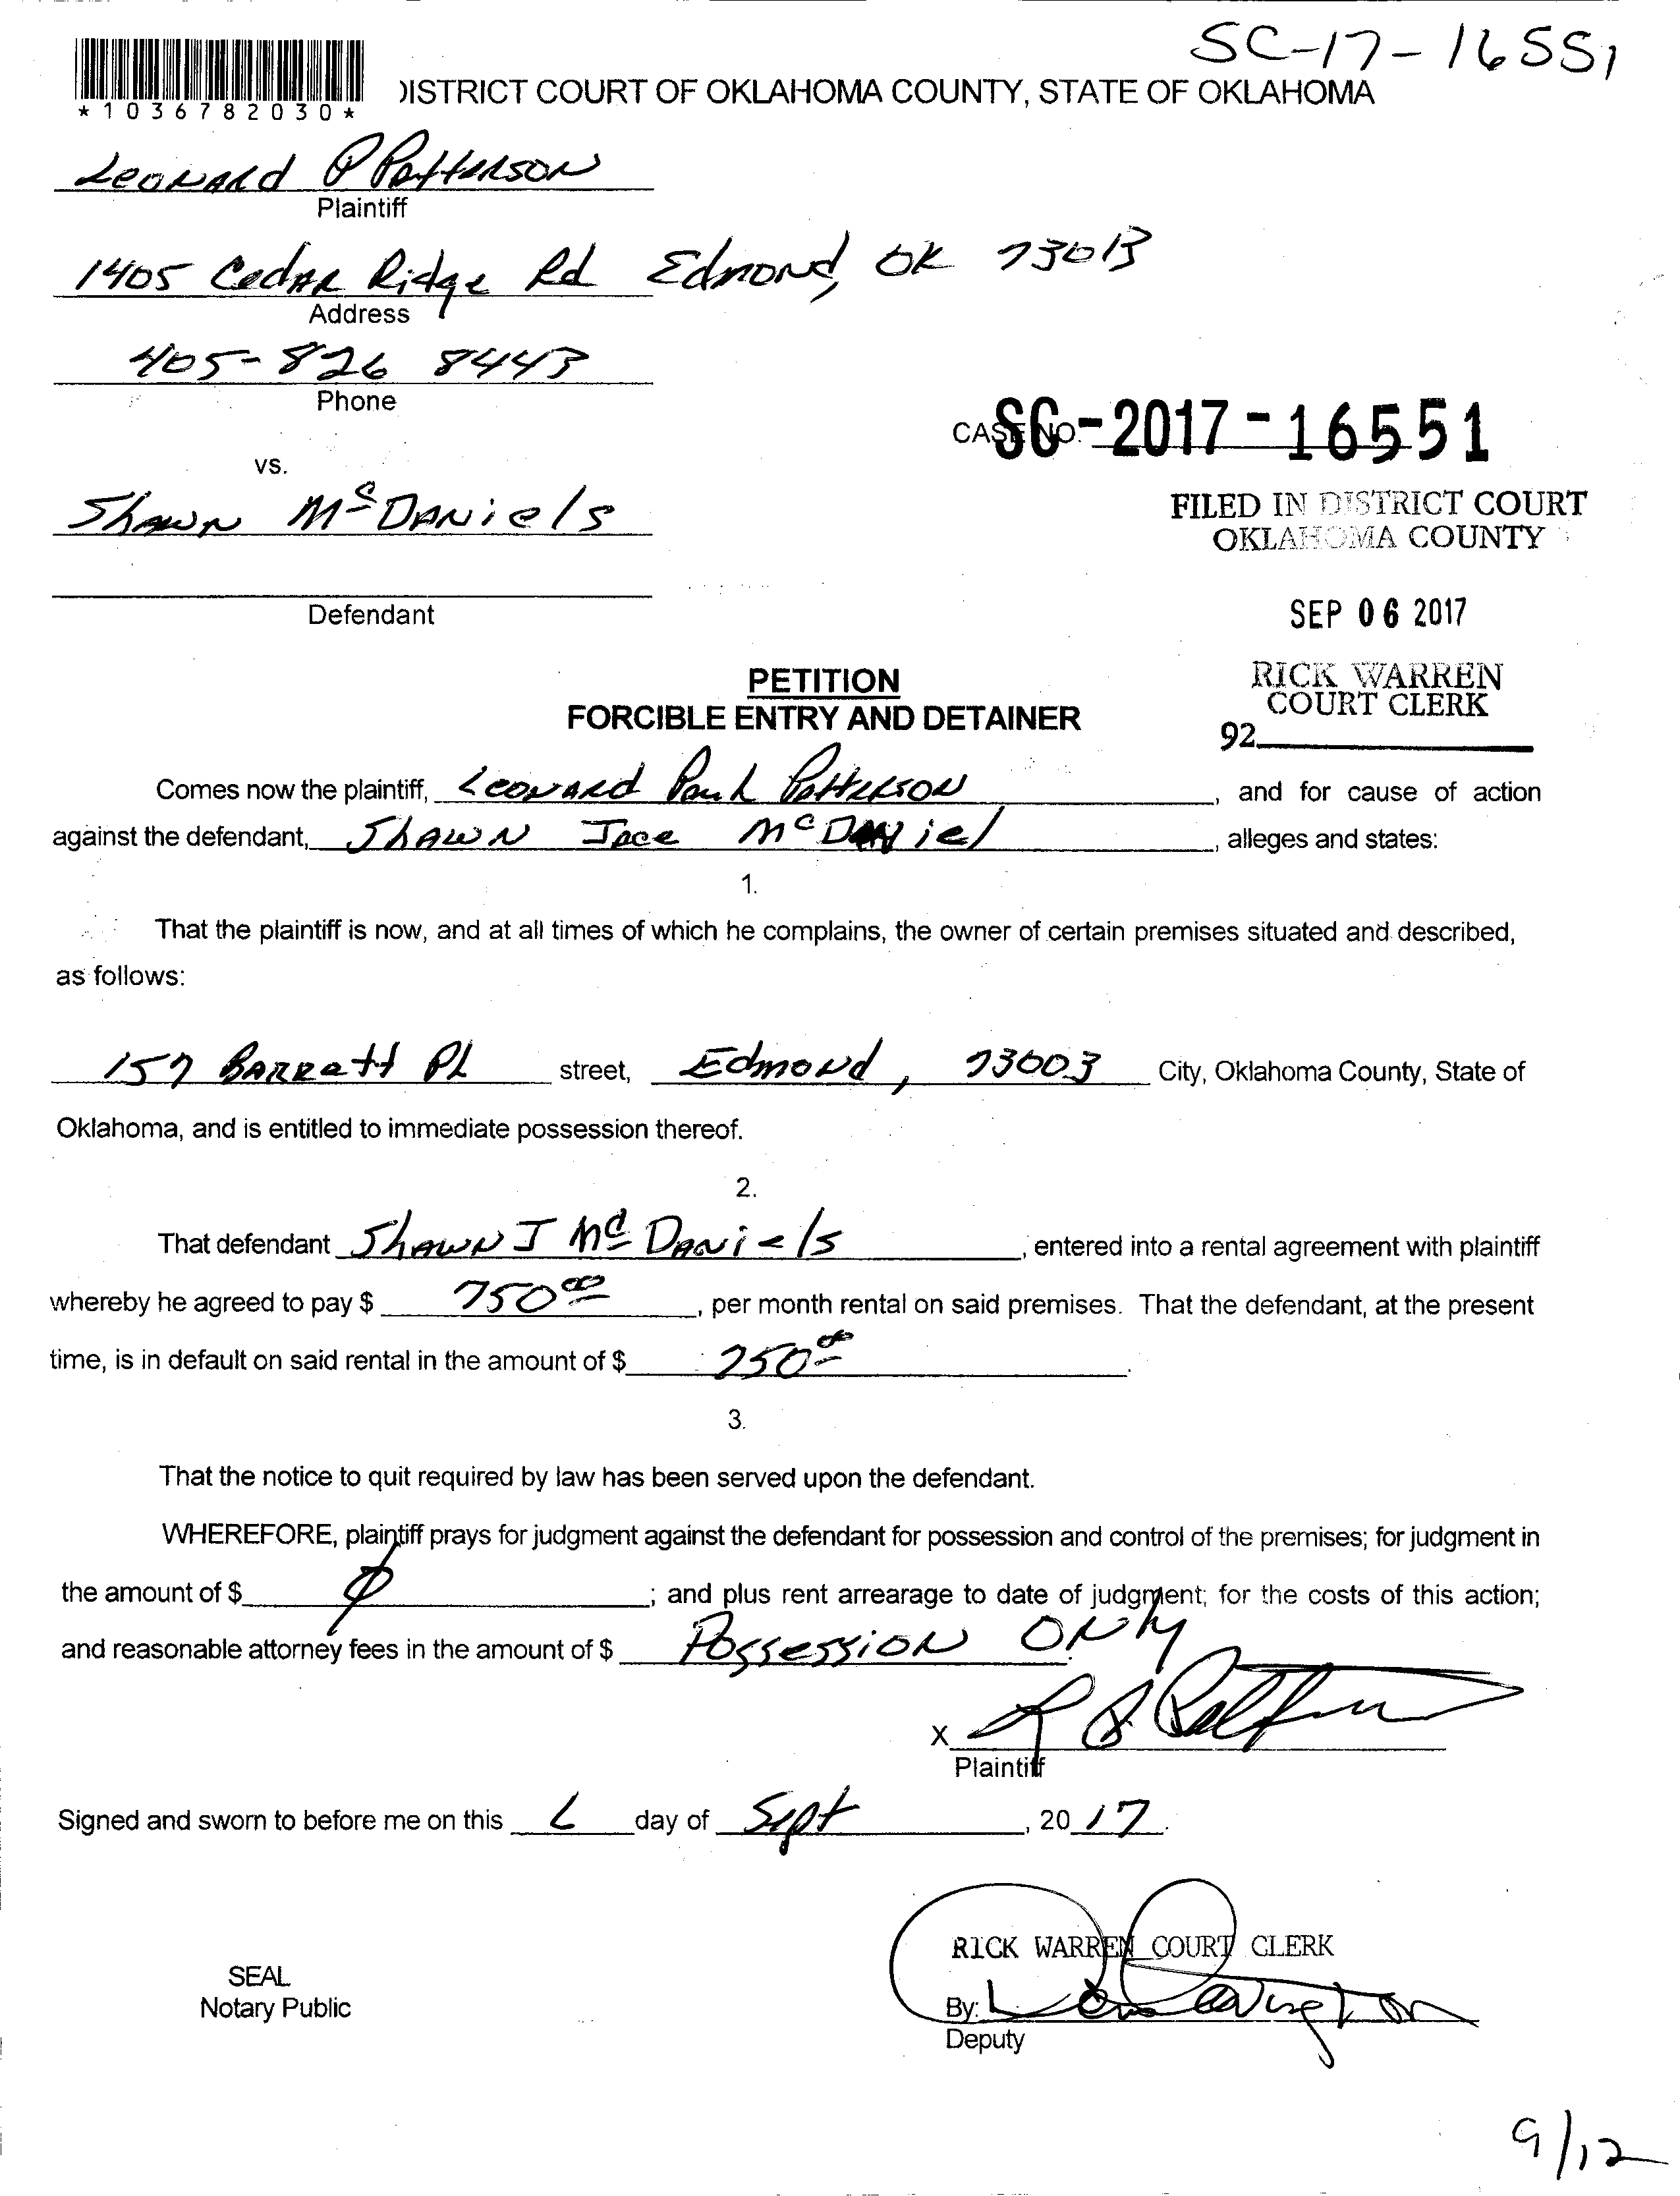 SC-17-16551
*1036782030*
DISTRICT COURT OF OKLAHOMA COUNTY, STATE OF OKLAHOMA
Leonard P Patterson
Plaintiff
1405 Cedar Ridge Rd Edmond, OK 73013
Address
405-826 8443
Phone
CASE NO. SC-2017-16551
vs.
Shawn McDaniels
FILED IN DISTRICT COURT
OKLAHOMA COUNTY
Defendant
SEP 06 2017
PETITION
FORCIBLE ENTRY AND DETAINER
RICK WARREN
COURT CLERK
92
Comes now the plaintiff, Leonard Paul Patterson, and for cause of action
against the defendant, Shawn Jace McDaniel, alleges and states:
1.
That the plaintiff is now, and at all times of which he complains, the owner of certain premises situated and described,
as follows:
157 Barrett Pl street, Edmond, 73003 City, Oklahoma County, State of
Oklahoma, and is entitled to immediate possession thereof.
2.
That defendant Shawn J McDaniels, entered into a rental agreement with plaintiff
whereby he agreed to pay $ 750 00, per month rental on said premises. That the defendant, at the present
time, is in default on said rental in the amount of $ 750 00.
3.
That the notice to quit required by law has been served upon the defendant.
WHEREFORE, plaintiff prays for judgment against the defendant for possession and control of the premises; for judgment in
the amount of $ Ø; and plus rent arrearage to date of judgment; for the costs of this action;
and reasonable attorney fees in the amount of $ Possession Only.
X
Plaintiff
Signed and sworn to before me on this 6 day of Sept, 2017.
RICK WARREN COURT CLERK
SEAL
Notary Public
By:
Deputy
9/12